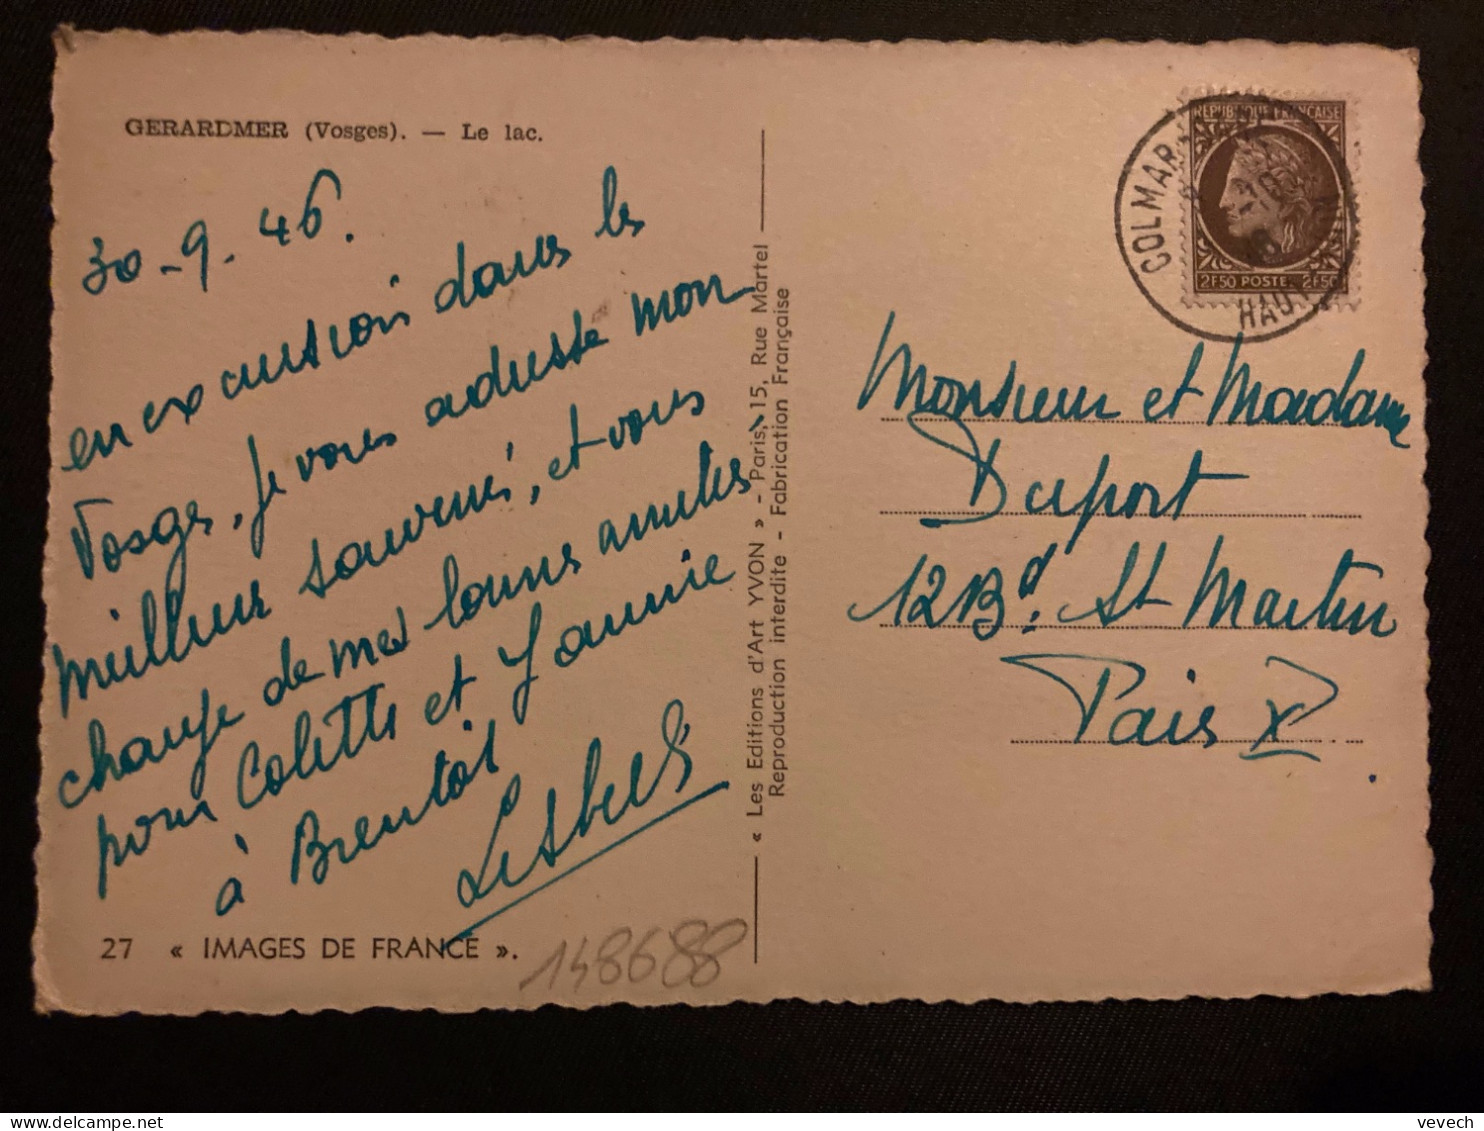 GERARDMER (Vosges). — Le lac.
30-9-46.
en excursion dans les
Vosges, je vous adresse mon
meilleur souvenir, et vous
charge de mes bonnes amitiés
pour Colette et Jannie
à
27 « IMAGES DE FRANCE ».
148688
« Les Editions d'Art YVON » - Paris, 15, Rue Martel
Reproduction interdite - Fabrication Française
REPUBLIQUE FRANÇAISE
2F50 POSTE 2F50
COLMAR
HAUT
Monsieur et Madame
Duport
12 Bd. St Martin
Paris X
vevech